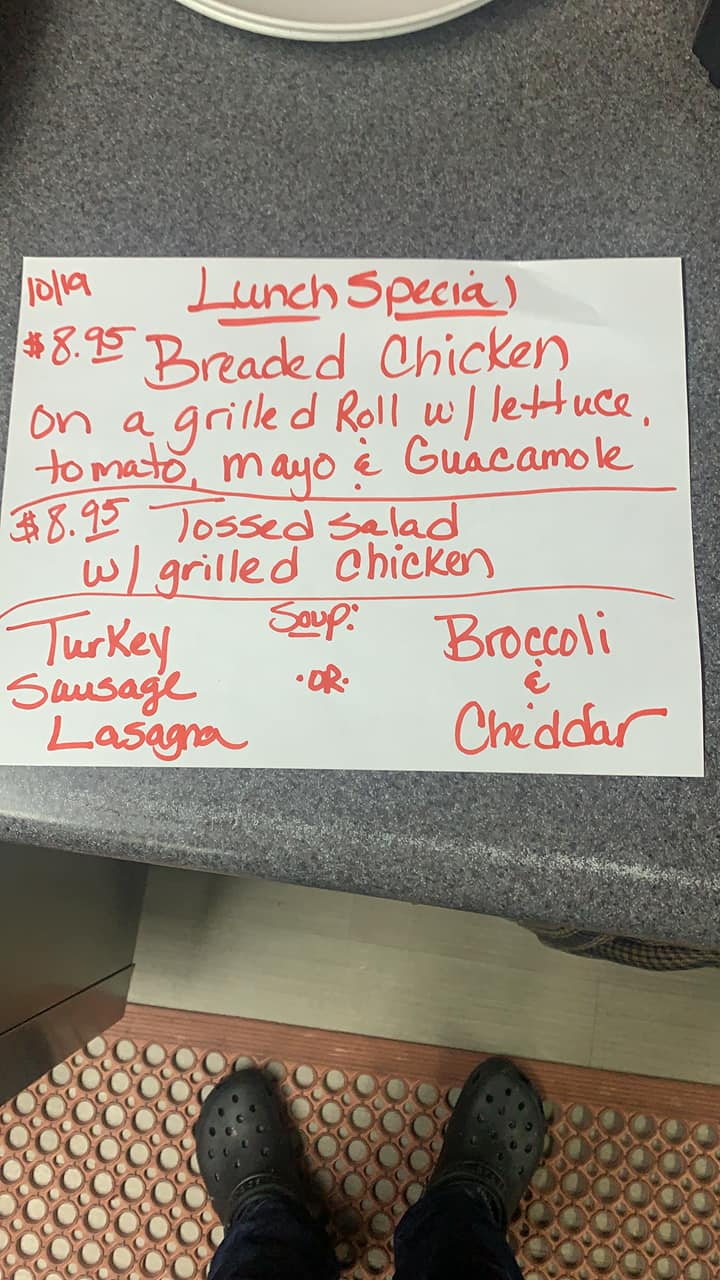 10/19 Lunch Special
$8.95 Breaded Chicken
on a grilled Roll w/ lettuce,
tomato, mayo & Guacamole
$8.95 Tossed Salad
w/ grilled Chicken
Soup:
Turkey
Sausage
Lasagna
·OR·
Broccoli
&
Cheddar